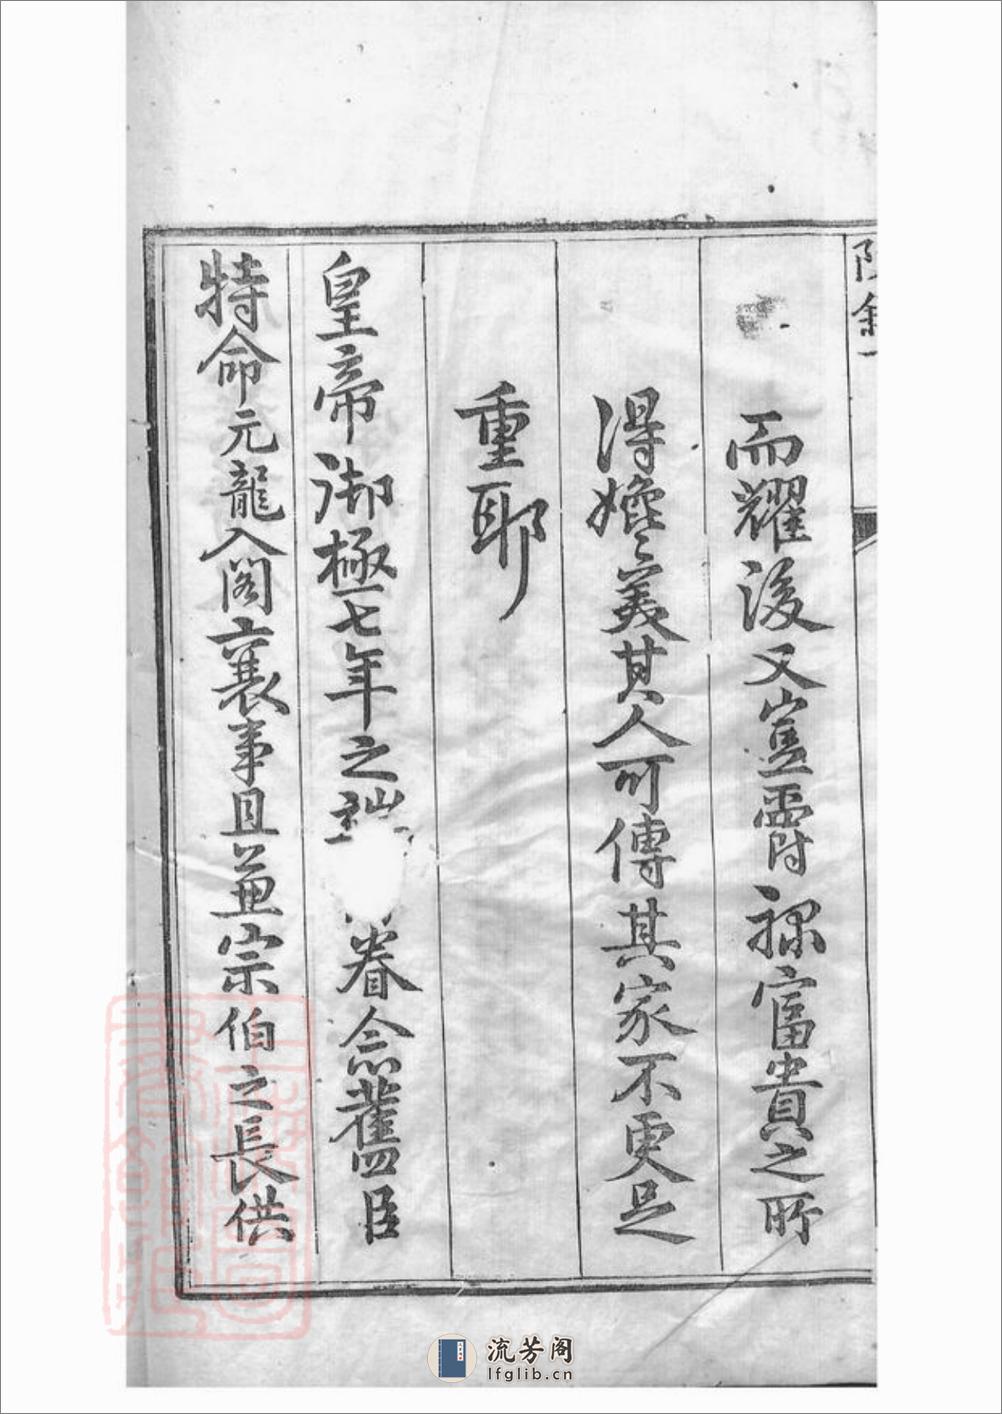 而耀後又豈霨祿富貴之所
得媲美其人可傳其家不更足
重耶
皇帝御極七年之 眷念舊臣
特命元龍入閣襄事且兼宗伯之長供
流芳阁
lfglib.cn